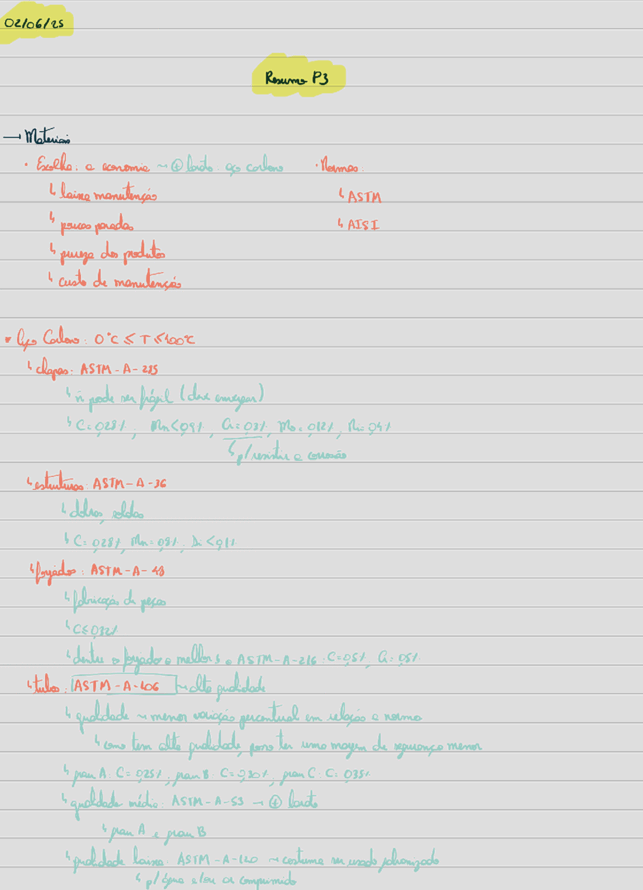 02/06/25
Resumo P3
→ Materiais
• Escolha: a economia → ⊕ barato: aço carbono • Normas:
↳ baixa manutenção ↳ ASTM
↳ poucas paradas ↳ AISI
↳ pureza dos produtos
↳ custo de manutenção
• Aço Carbono: 0°C ≤ T ≤ 400°C
↳ chapas: ASTM-A-285
↳ ñ pode ser frágil (deve amassar)
↳ C=0,28%, Mn<0,9%, Cu=0,3%, Mo=0,12%, Ni=0,4%
↳ p/ resistir a corrosão
↳ estruturas: ASTM-A-36
↳ dobras, soldas
↳ C=0,28%, Mn=0,8%, Si<0,1%
↳ forjados: ASTM-A-48
↳ fabricação de peças
↳ C≤0,32%
↳ dentre os forjados o melhor é o ASTM-A-216: C=0,5%, Cu=0,5%
↳ tubos: ASTM-A-106 → alta qualidade
↳ qualidade → menor variação percentual em relação a norma
↳ como tem alta qualidade, posso ter uma margem de segurança menor
↳ grau A: C=0,25%, grau B: C=0,30%, grau C: C=0,35%
↳ qualidade média: ASTM-A-53 → ⊕ barato
↳ grau A e grau B
↳ qualidade baixa: ASTM-A-120 → costuma ser usado galvanizado
↳ p/ água e/ou ar comprimido